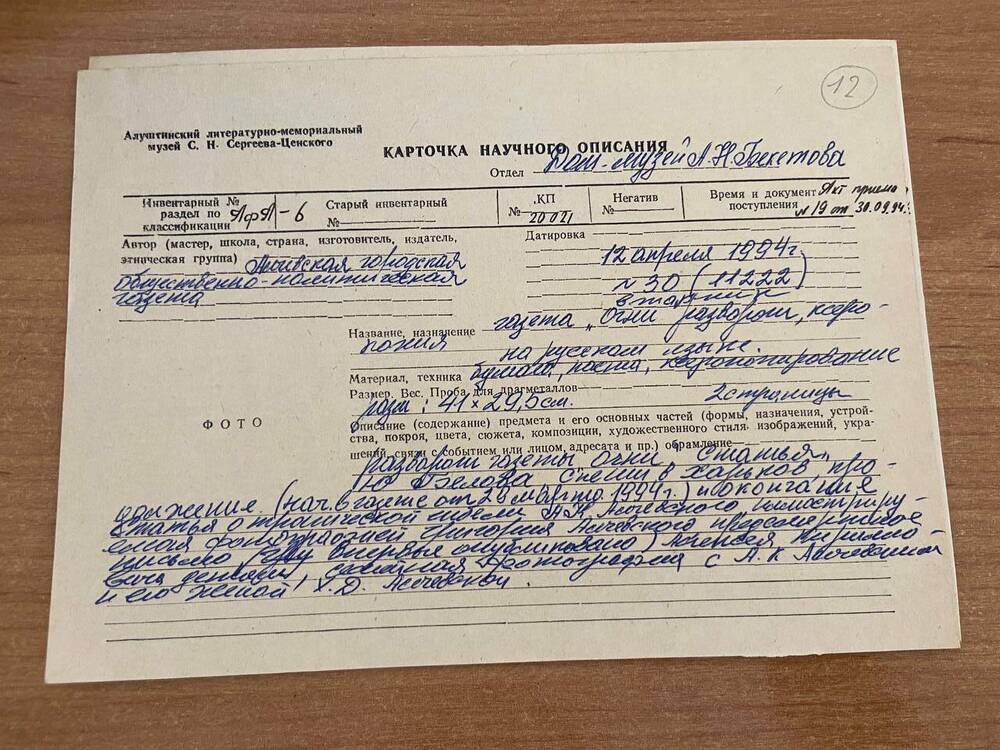 12
Алуштинский литературно-мемориальный
музей С. Н. Сергеева-Ценского
КАРТОЧКА НАУЧНОГО ОПИСАНИЯ
Отдел Дом-музей А.Н. Бекетова
Инвентарный № раздел по классификации -6
Старый инвентарный №
КП № 20021
Негатив №
Время и документ поступления Акт приема № 19 от 30.09.94г.
Автор (мастер, школа, страна, изготовитель, издатель,
этническая группа) Алчевская городская
общественно-политическая
газета
Датировка
12 апреля 1994г.
№ 30 (11222)
вторник
Название, назначение газета „Огни разворот, ксеро-
копия на русском языке.
Материал, техника бумага, паста, ксерокопирование
Размер. Вес. Проба для драгметаллов
разм: 41 × 29,5 см. 2 страницы
ФОТО
Описание (содержание) предмета и его основных частей (формы, назначения, устрой-
ства, покроя, цвета, сюжета, композиции, художественного стиля изображений, укра-
шений, связи с событием или лицом, адресата и пр.) обрамление
разворот газеты Огни статья „
Ю Белова Спеши в Харьков про-
должение. (нач. в газете от 28 марта 1994г.) и окончание
статья о трагической гибели Алчевского, иллюстриру-
фотографией Григория Алчевского предсмертное
письмо впервые опубликовано) Алексея Кирилло-
вича фотография с А.К Алчевским
и его женой, Х.Д. Алчевской